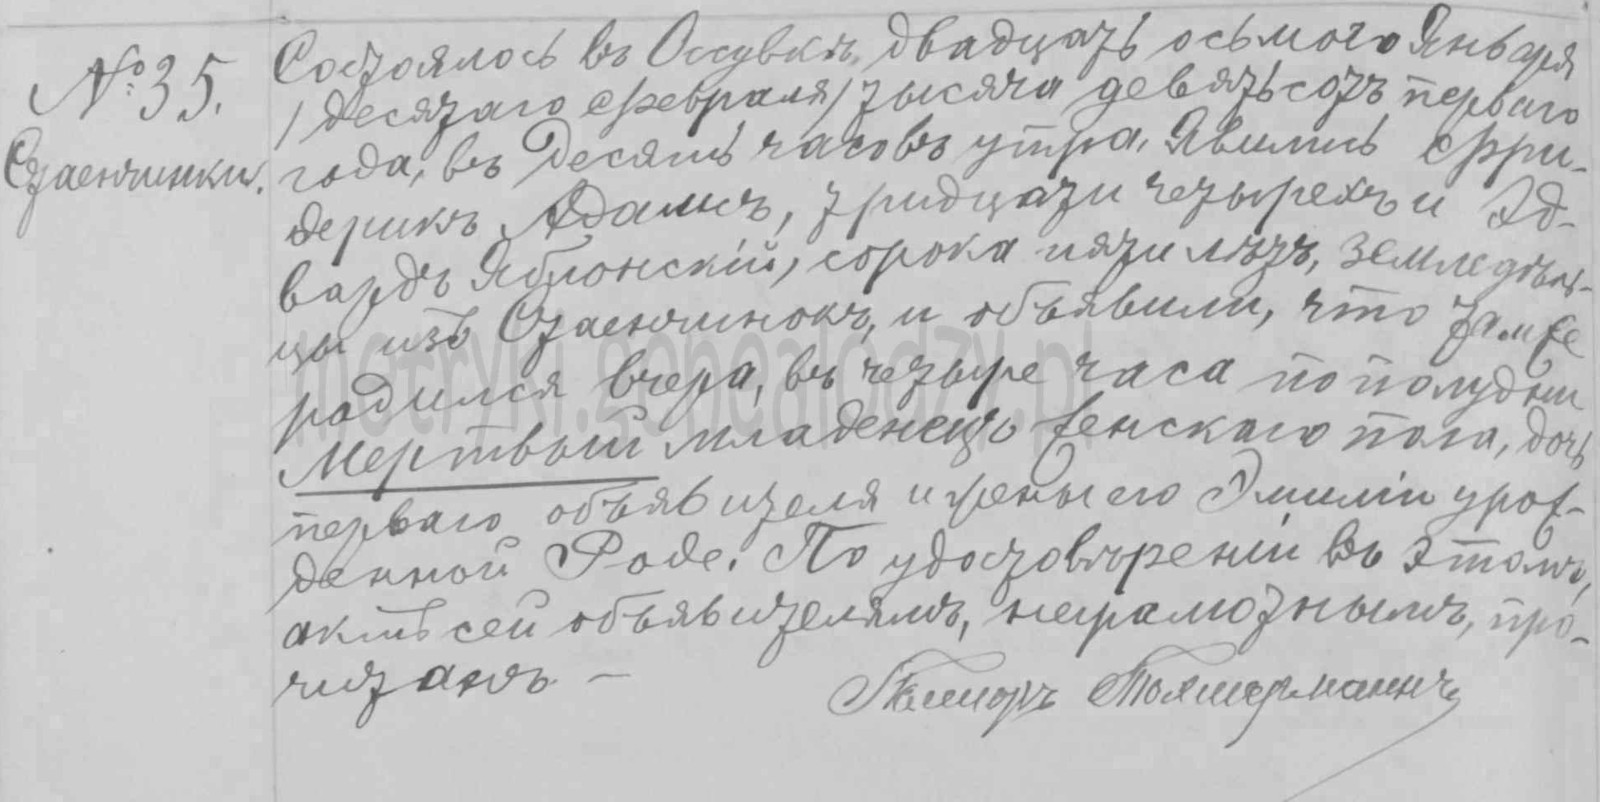 № 35.
Стаенчинки.
Состоялось въ Оссувкѣ, двадцать осьмого Января
/десятаго февраля/ тысяча девятьсотъ перваго
года, въ десять часовъ утра. Явились Фри-
дерикъ Адамъ, тридцати четырехъ и Эд-
вардъ Яблонскій, сорока пяти лѣтъ, земледѣль-
цы изъ Стаенчинокъ, и объявили, что тамже
родился вчера, въ четыре часа по полудни
мертвый младенецъ женскаго пола, дочь
перваго объявителя и жены его Эмиліи урож-
денной Роде. По удостовѣреніи въ этомъ,
актъ сей объявителямъ, неграмотнымъ, про-
читанъ —
Пасторъ
metryki.genealodzy.pl